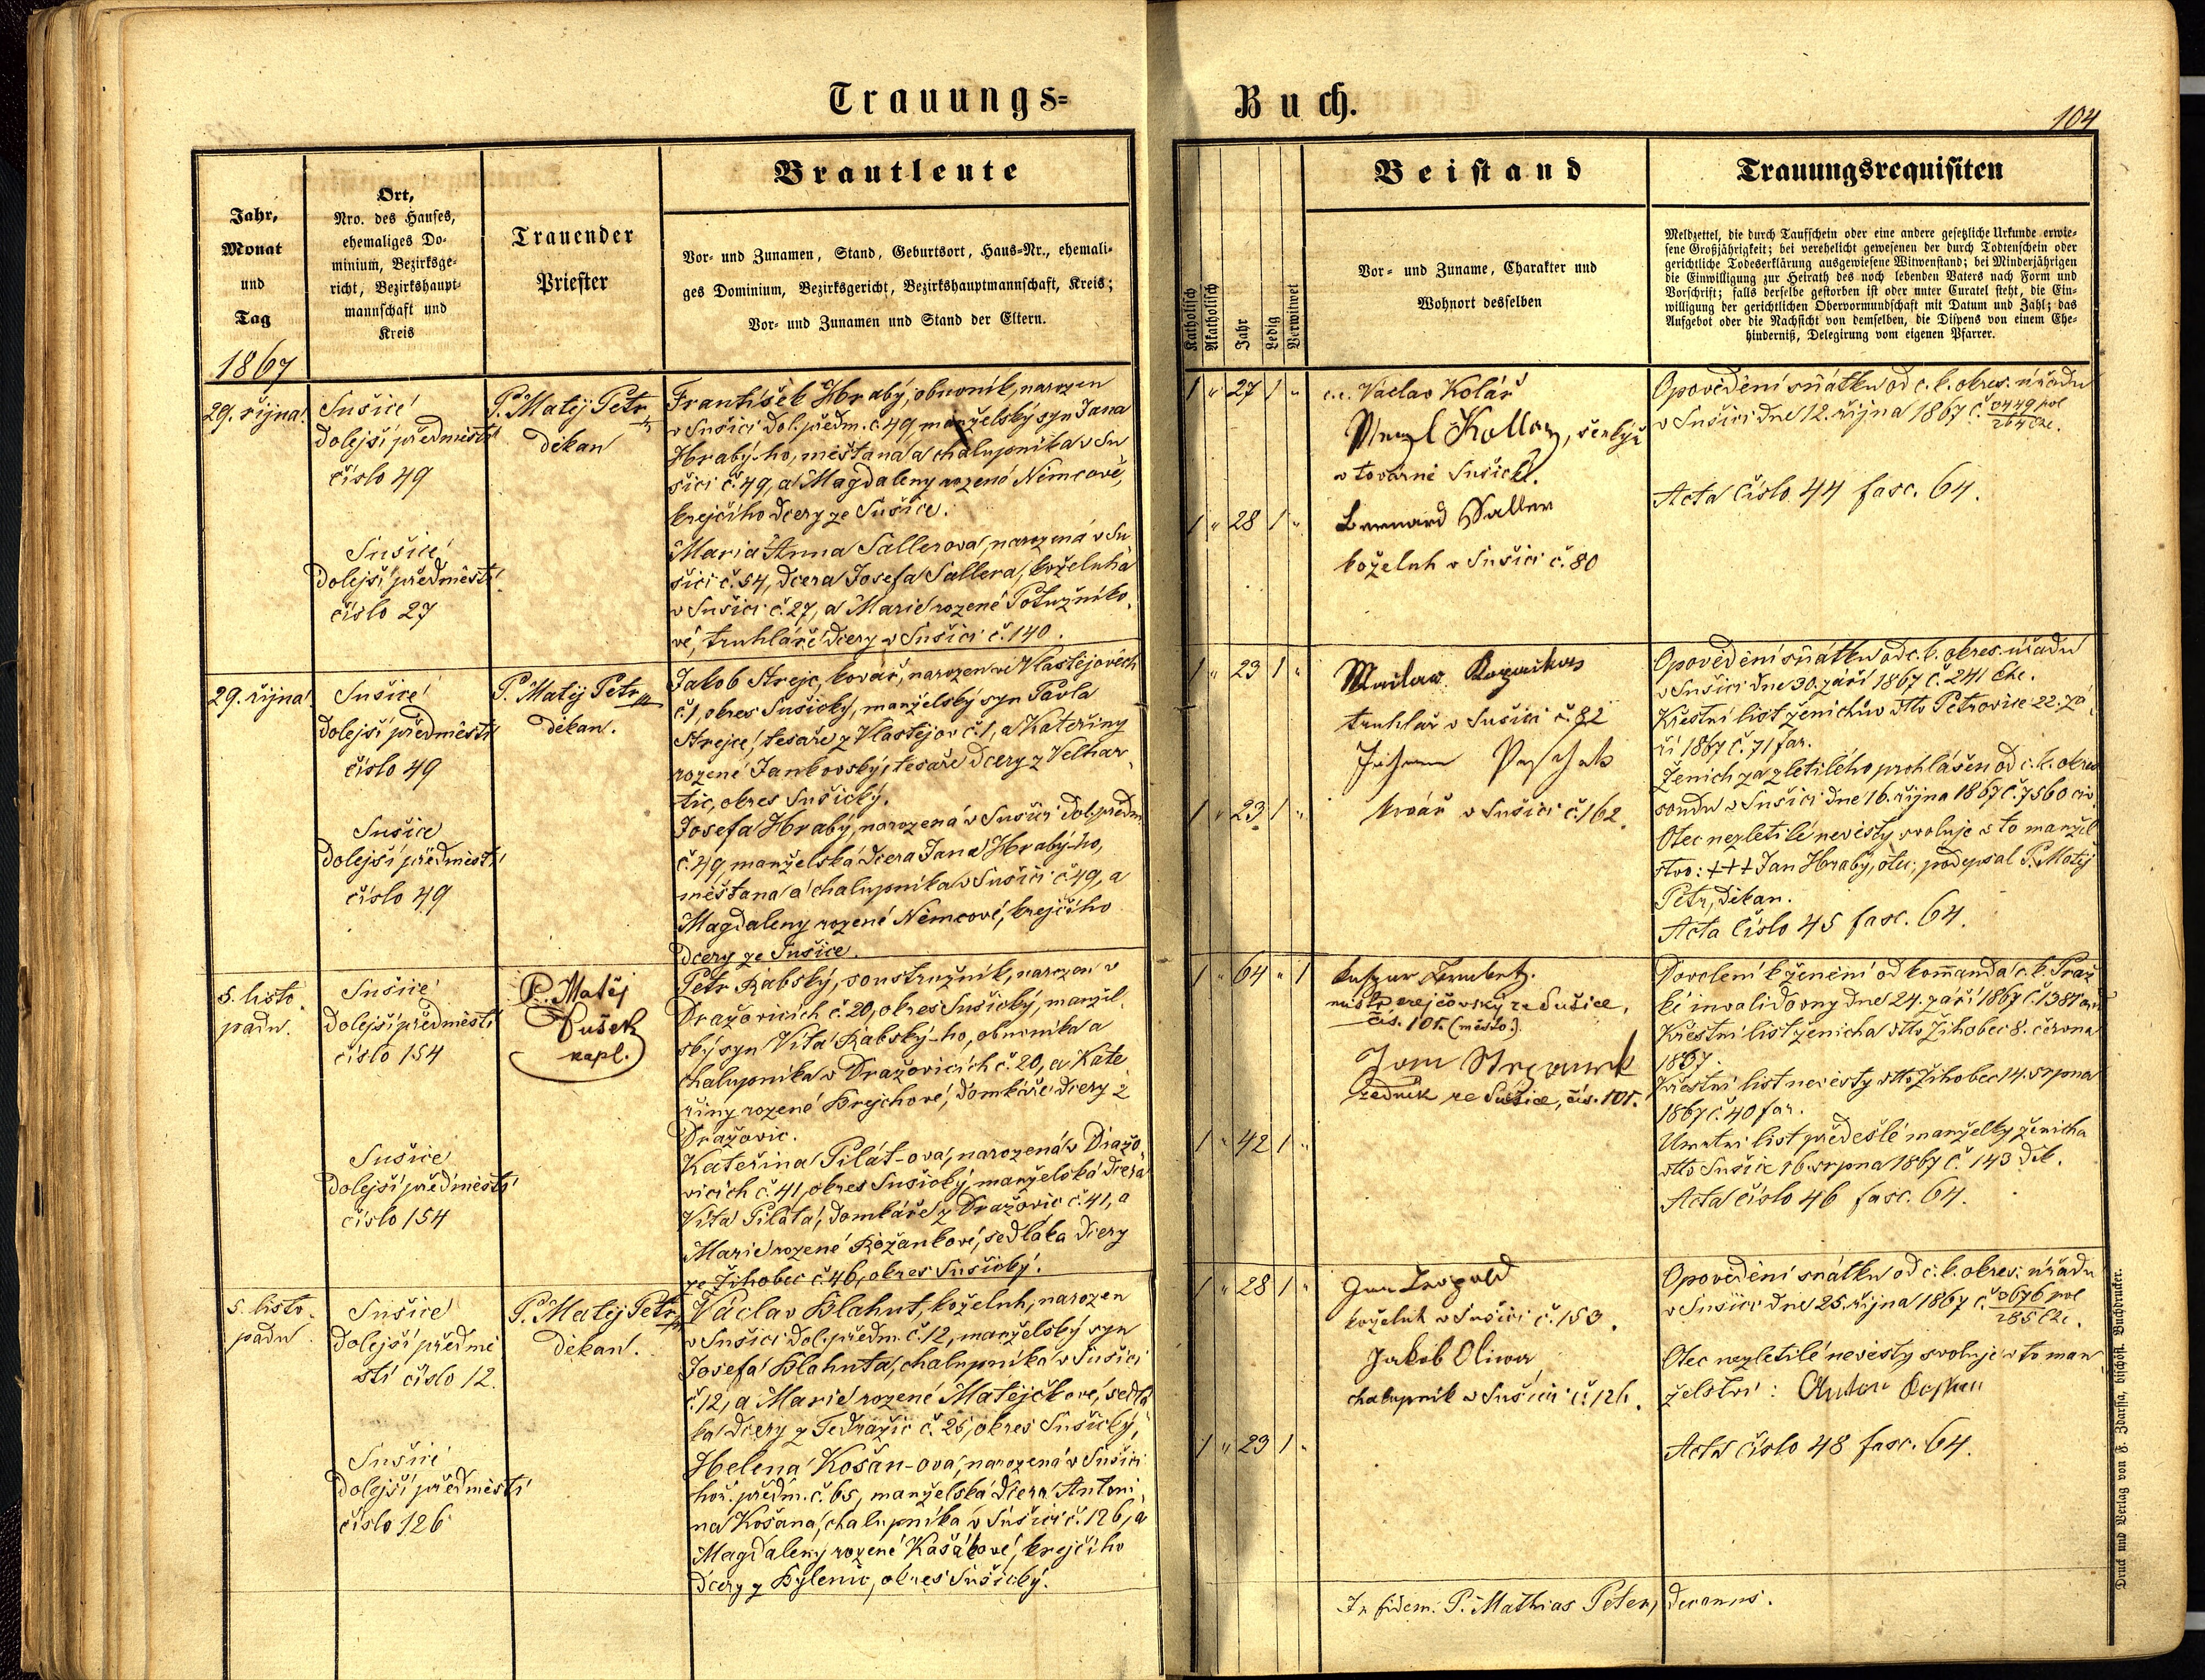 Trauungs=
Buch.
104
Jahr,
Monat
und
Tag
Ort,
Nro. des Hauses,
ehemaliges Do-
minium, Bezirksge-
richt, Bezirkshaupt-
mannschaft und
Kreis
Trauender
Priester
Brautleute
Vor- und Zunamen, Stand, Geburtsort, Haus-Nr., ehemali-
ges Dominium, Bezirksgericht, Bezirkshauptmannschaft, Kreis;
Vor- und Zunamen und Stand der Eltern.
Katholisch
Akatholisch
Jahr
Ledig
Verwitwet
Beistand
Vor- und Zuname, Charakter und
Wohnort desselben
Trauungsrequisiten
Meldzettel, die durch Taufschein oder eine andere gesetzliche Urkunde erwie-
sene Großjährigkeit; bei verehelicht gewesenen der durch Todtenschein oder
gerichtliche Todeserklärung ausgewiesene Witwenstand; bei Minderjährigen
die Einwilligung zur Heirath des noch lebenden Vaters nach Form und
Vorschrift; falls derselbe gestorben ist oder unter Curatel steht, die Ein-
willigung der gerichtlichen Obervormundschaft mit Datum und Zahl; das
Aufgebot oder die Nachsicht von demselben, die Dispens von einem Ehe-
hinderniß, Delegirung vom eigenen Pfarrer.
1867
29. října
Sušice
dolejší předměstí
číslo 49
Sušice
dolejší předměstí
číslo 27
P. Matěj Petr
děkan
František Hrabý, obuvník, narozen
v Sušici dol. předm. č. 49, manželský syn Jana
Hrabý-ho, měšťana a chalupníka v Su
šici č. 49, a Magdaleny rozené Němcové,
krejčího dcery ze Sušice.
Maria Anna Sallerova, narozená v Su
šici č. 54, dcera Josefa Sallera, koželuha
v Sušici č. 27, a Marie rozené Potužníko-
vé, truhláře dcery v Sušici č. 140.
1 " 27 1 "
1 " 28 1 "
Václav Kolář
v továrně Sušické.
Bernard Saller
koželuh v Sušici č. 80
Opovědění sňatku od c. k. okres. úřadu
v Sušici dne 12. října 1867 č.
Acta číslo 44 fasc. 64.
29. října
Sušice
dolejší předměstí
číslo 49
Sušice
dolejší předměstí
číslo 49
P. Matěj Petr
děkan.
Jakob Strejc, kovář, narozen ve Vlastějovech
č. 1, okres Sušický, manželský syn Pavla
Strejce, tesaře z Vlastějov č. 1, a Kateřiny
rozené Jankovský, tesaře dcery z Velhar-
tic, okres Sušický.
Josefa Hrabý, narozená v Sušici dol. předm.
č. 49, manželská dcera Jana Hrabý-ho,
měšťana a chalupníka v Sušici č. 49, a
Magdaleny rozené Němcové, krejčího
dcery ze Sušice.
1 " 23 1 "
1 " 23 1 "
truhlář v Sušici č. 82
kovář v Sušici č. 162.
Opovědění sňatku od c. k. okres. úřadu
v Sušici dne 30. září 1867 č. 241 Ehe.
Křestní list ženichův dto Petrovice 22. zá-
ří 1867 č. 71 far.
Ženich za zletilého prohlášen od c. k. okres
soudu v Sušici dne 16. října 1867 č. 7560 civ.
Otec nezletilé nevěsty svoluje v to manžel
stvo: +++ Jan Hrabý, otec; podepsal P. Matěj
Petr, děkan.
Acta číslo 45 fasc. 64.
5. listo-
padu.
Sušice
dolejší předměstí
číslo 154
Sušice
dolejší předměstí
číslo 154
P. Matěj
Fušek
kapl.
Petr Rabský, soustružník, narozen v
Dražovicích č. 20, okres Sušický, manžel-
ský syn Víta Rabský-ho, obuvníka a
chalupníka v Dražovicích č. 20, a Kate
řiny rozené Brejchové, domkáře dcery z
Dražovic.
Kateřina Pilát-ova, narozená v Dražo-
vicích č. 41, okres Sušický, manželská dcera
Víta Piláta, domkáře z Dražovic č. 41, a
Marie rozené Rožankové, sedláka dcery
ze Žihobec č. 46, okres Sušický.
1 " 64 " 1
1 " 42 1 "
mistr krejčovský ze Sušice,
čís. 105. (město).
zedník ze Sušice, čís. 101.
Dovolení k ženění od kommanda c. k. Praž
ské invalidovny dne 24. září 1867 č. 1381
Křestní list ženicha dto Žihobec 8. června
1867.
Křestní list nevěsty dto Žihobec 14. srpna
1867 č. 40 far.
Úmrtní list předešlé manželky ženicha
dto Sušice 16. srpna 1867 č. 143 děk.
Acta číslo 46 fasc. 64.
5. listo-
padu
Sušice
dolejší předmě
stí číslo 12.
Sušice
dolejší předměstí
číslo 126
P. Matěj Petr
děkan.
Václav Blahut, koželuh, narozen
v Sušici dol. předm. č. 12, manželský syn
Josefa Blahuta, chalupníka v Sušici
č. 12, a Marie rozené Matějčkové, sedlá
ka dcery z Tedražic č. 26, okres Sušický.
Helena Košan-ova, narozená v Sušici
hoř. předm. č. 65, manželská dcera Antoní-
na Košana, chalupníka v Sušici č. 126, a
Magdaleny rozené Kašákové, krejčího
dcery z Bylenic, okres Sušický.
1 " 28 1 "
1 " 23 1 "
Jan Leopold
koželuh v Sušici č. 153.
Jakob Oliwa
chalupník v Sušici č. 126.
Opovědění snátku od c. k. okres. úřadu
v Sušici dne 25. října 1867 č.
Otec nezletilé nevěsty svoluje v to man-
želství: Anton
Acta číslo 48 fasc. 64.
In fidem. P. Mathias Peter, decanus.
Druck und Verlag von F. Zdarssa, bischöfl. Buchdrucker.